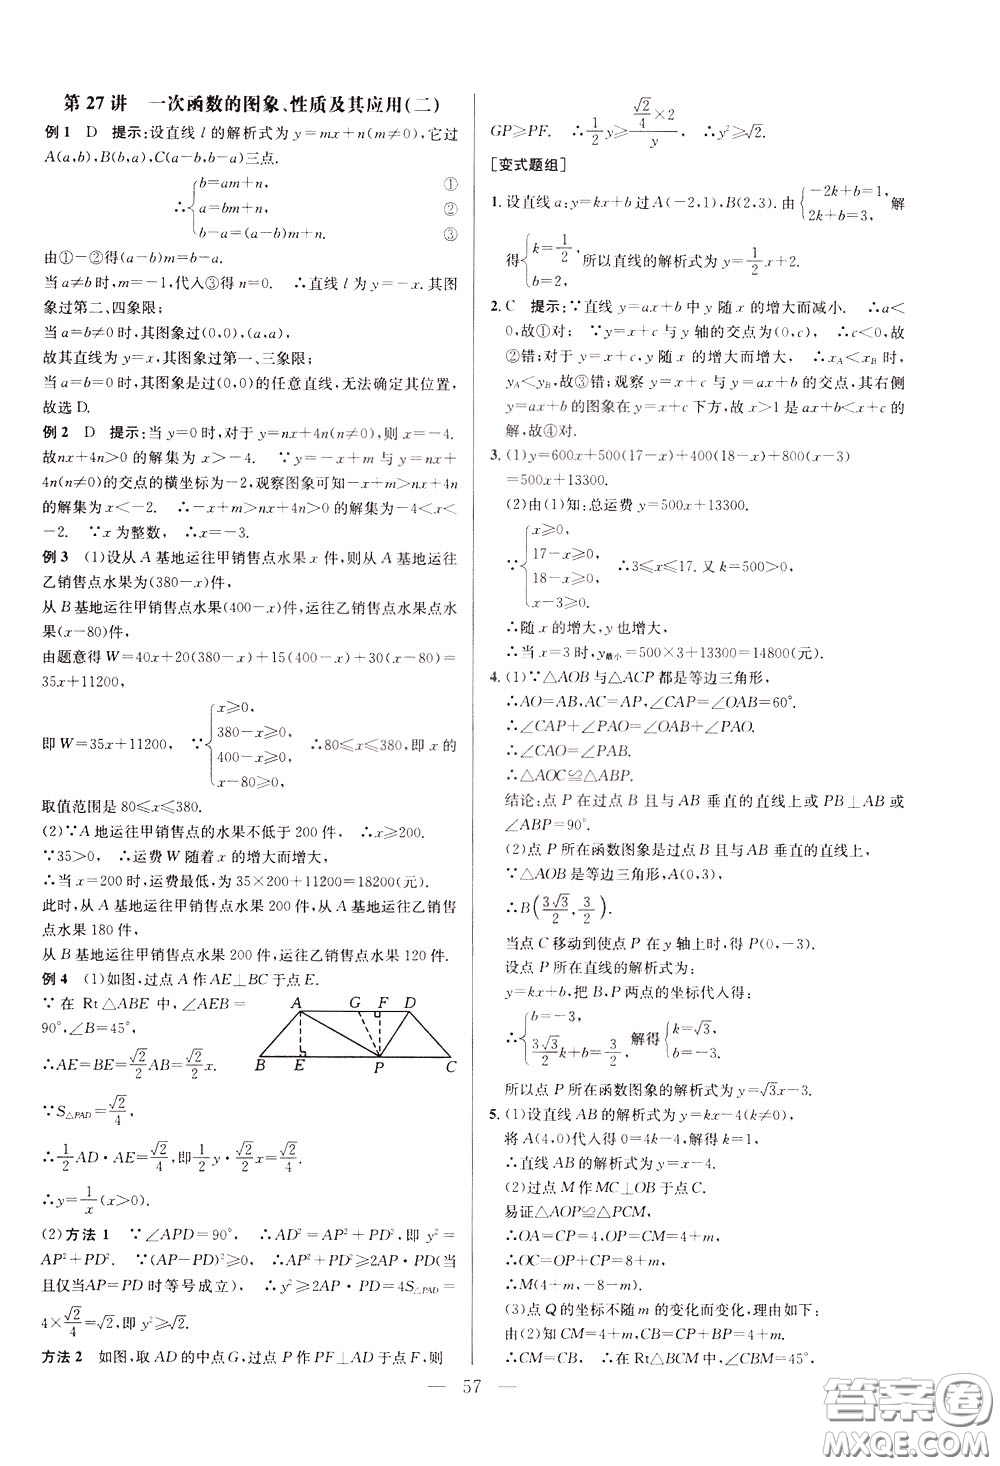 第 27 讲　一次函数的图象、性质及其应用(二)
例 1　D　提示:设直线 l 的解析式为 y=mx+n(m≠0),它过
A(a,b),B(b,a),C(a-b,b-a)三点.
∴{b=am+n, ①
a=bm+n, ②
b-a=(a-b)m+n. ③
由①-②得(a-b)m=b-a.
当 a≠b 时,m=-1,代入③得 n=0.　∴直线 l 为 y=-x. 其图
象过第二、四象限;
当 a=b≠0 时,其图象过(0,0),(a,a),
故其直线为 y=x,其图象过第一、三象限;
当 a=b=0 时,其图象是过(0,0)的任意直线,无法确定其位置,
故选 D.
例 2　D　提示:当 y=0 时,对于 y=nx+4n(n≠0),则 x=-4.
故nx+4n>0 的解集为 x>-4.　∵y=-x+m 与 y=nx+
4n(n≠0)的交点的横坐标为-2,观察图象可知-x+m>nx+4n
的解集为 x<-2.　∴-x+m>nx+4n>0 的解集为-4<x<
-2.　∵x 为整数,　∴x=-3.
例 3　(1)设从 A 基地运往甲销售点水果 x 件,则从 A 基地运往
乙销售点水果为(380-x)件,
从 B 基地运往甲销售点水果(400-x)件,运往乙销售点水果点水
果(x-80)件,
由题意得 W=40x+20(380-x)+15(400-x)+30(x-80)=
35x+11200,
即 W=35x+11200,　∵{x≥0,
380-x≥0,
400-x≥0,
x-80≥0,　∴80≤x≤380,即 x 的
取值范围是 80≤x≤380.
(2)∵A 地运往甲销售点的水果不低于 200 件,　∴x≥200.
∵35>0,　∴运费 W 随着 x 的增大而增大,
∴当 x=200 时,运费最低,为 35×200+11200=18200(元).
此时,从 A 基地运往甲销售点水果 200 件,从 A 基地运往乙销售
点水果 180 件,
从 B 基地运往甲销售点水果 200 件,运往乙销售点水果 120 件.
例 4　(1)如图,过点 A 作 AE⊥BC 于点 E.
∵ 在 Rt△ABE 中,∠AEB=
90°,∠B=45°,
∴AE=BE=√2/2 AB=√2/2 x.
∵S△PAD=√2/4,
∴1/2 AD·AE=√2/4,即1/2 y·√2/2 x=√2/4.
∴y=1/x (x>0).
A G F D
B E P C
(2)方法 1　∵∠APD=90°,　∴AD²=AP²+PD²,即 y²=
AP²+PD².　∵(AP-PD)²≥0,　∴AP²+PD²≥2AP·PD(当
且仅当AP=PD时等号成立),　∴y²≥2AP·PD=4S△PAD=
4×√2/4=√2,即 y²≥√2.
方法 2　如图,取 AD 的中点 G,过点 P 作 PF⊥AD 于点 F,则
GP≥PF.　∴1/2 y≥(√2/4×2)/y,　∴y²≥√2.
[变式题组]
1. 设直线 a:y=kx+b 过 A(-2,1),B(2,3). 由{-2k+b=1,
2k+b=3, 解
得{k=1/2
b=2, 所以直线的解析式为 y=1/2 x+2.
2. C　提示:∵直线 y=ax+b 中 y 随 x 的增大而减小.　∴a<
0,故①对;　∵y=x+c 与 y 轴的交点为(0,c),　∴c<0,故
②错;对于 y=x+c,y 随 x 的增大而增大,　∴xA<xB 时,
yA<yB,故③错;观察 y=x+c 与 y=ax+b 的交点,其右侧
y=ax+b 的图象在 y=x+c 下方,故 x>1 是 ax+b<x+c 的
解,故④对.
3. (1)y=600x+500(17-x)+400(18-x)+800(x-3)
=500x+13300.
(2)由(1)知:总运费 y=500x+13300.
∵{x≥0,
17-x≥0,
18-x≥0,
x-3≥0.　∴3≤x≤17. 又 k=500>0,
∴随 x 的增大,y 也增大,
∴当 x=3 时,y最小=500×3+13300=14800(元).
4. (1)∵△AOB 与△ACP 都是等边三角形,
∴AO=AB,AC=AP,∠CAP=∠OAB=60°.
∴∠CAP+∠PAO=∠OAB+∠PAO.
∴∠CAO=∠PAB.
∴△AOC≌△ABP.
结论:点 P 在过点 B 且与 AB 垂直的直线上或 PB⊥AB 或
∠ABP=90°.
(2)点 P 所在函数图象是过点 B 且与 AB 垂直的直线上,
∵△AOB 是等边三角形,A(0,3),
∴B(3√3/2, 3/2).
当点 C 移动到使点 P 在 y 轴上时,得 P(0,-3).
设点 P 所在的直线的解析式为:
y=kx+b,把 B、P 两点的坐标代入得:
∴{b=-3,
3√3/2 k+b=3/2　解得{k=√3,
b=-3.
所以点 P 所在函数图象的解析式为 y=√3x-3.
5. (1)设直线 AB 的解析式为 y=kx-4(k≠0),
将 A(4,0)代入得 0=4k-4,解得 k=1,
∴直线 AB 的解析式为 y=x-4.
(2)过点 M 作 MC⊥OB 于点 C.
易证△AOP≌△PCM,
∴OA=CP=4,OP=CM=4+m,
∴OC=OP+CP=8+m,
∴M(4+m,-8-m).
(3)点 Q 的坐标不随 m 的变化而变化,理由如下:
由(2)知 CM=4+m,CB=OC-OB=4+m,
∴CM=CB,　∴在 Rt△BCM 中,∠CBM=45°,
— 57 —
答案圈
MXQE.COM